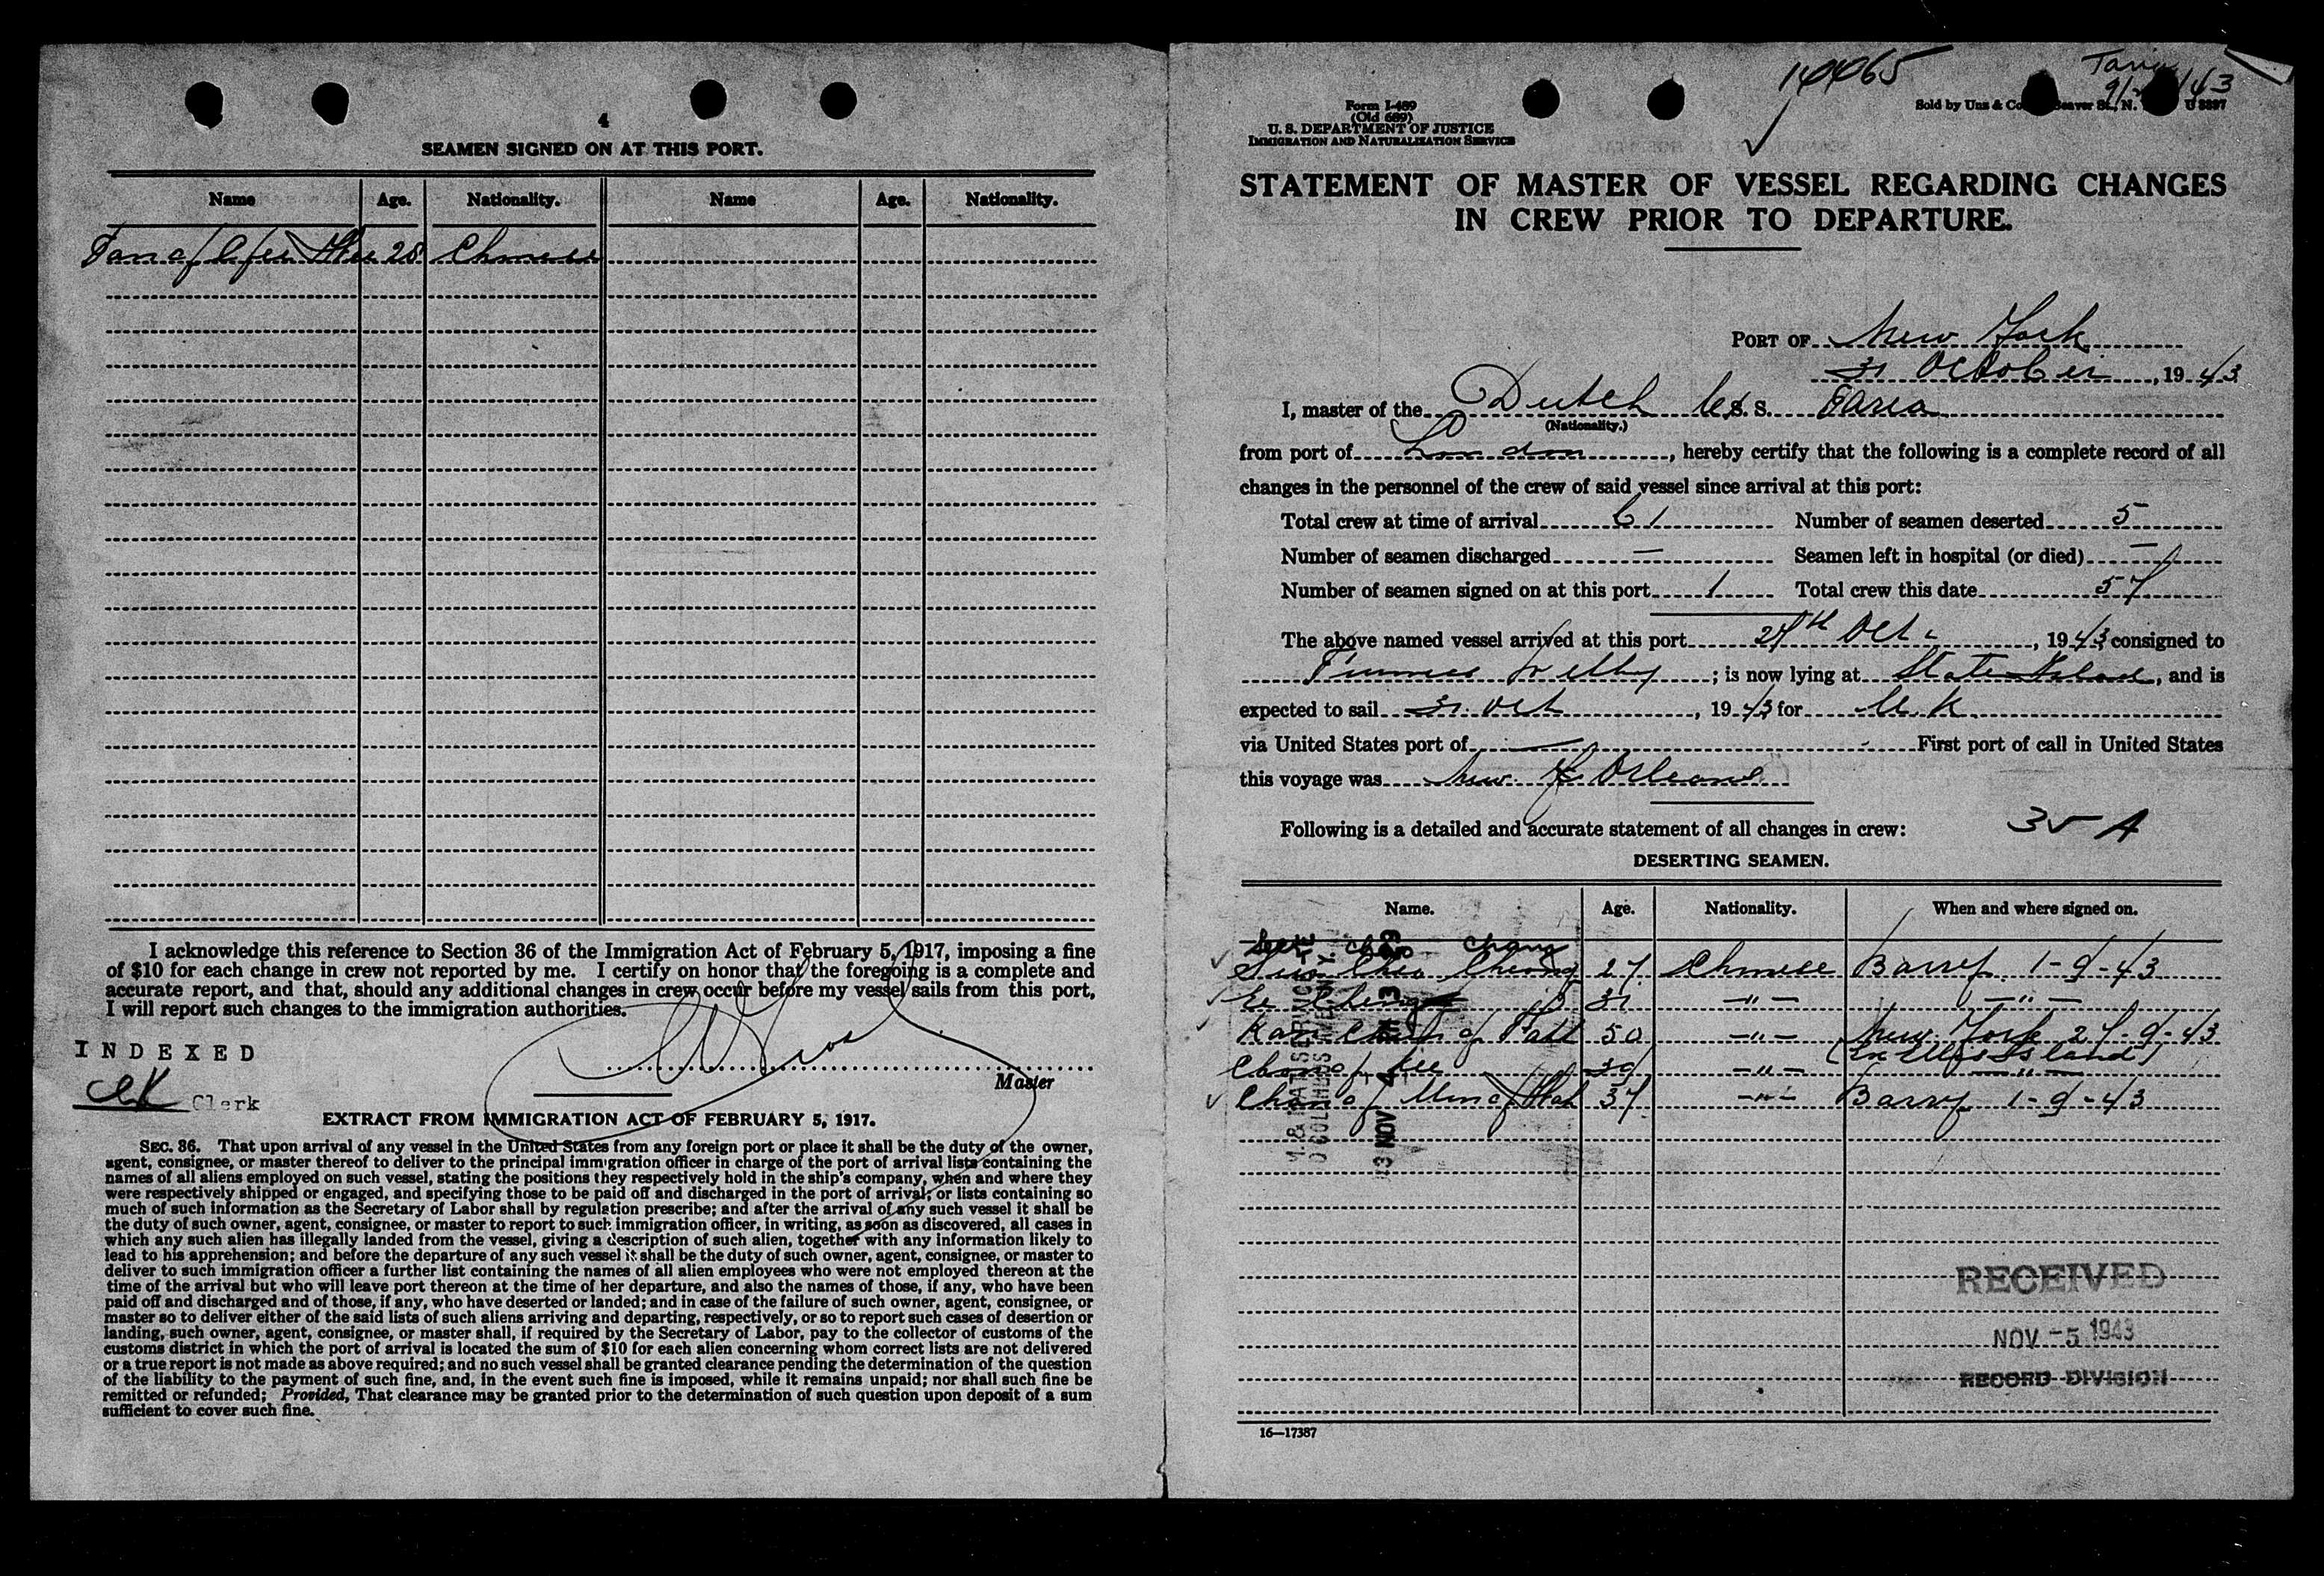 4
SEAMEN SIGNED ON AT THIS PORT.
Name Age. Nationality. Name Age. Nationality.
28 Chinese
I acknowledge this reference to Section 36 of the Immigration Act of February 5, 1917, imposing a fine
of $10 for each change in crew not reported by me. I certify on honor that the foregoing is a complete and
accurate report, and that, should any additional changes in crew occur before my vessel sails from this port,
I will report such changes to the immigration authorities.
INDEXED
Master
Clerk
EXTRACT FROM IMMIGRATION ACT OF FEBRUARY 5, 1917.
SEC. 36. That upon arrival of any vessel in the United States from any foreign port or place it shall be the duty of the owner,
agent, consignee, or master thereof to deliver to the principal immigration officer in charge of the port of arrival lists containing the
names of all aliens employed on such vessel, stating the positions they respectively hold in the ship's company, when and where they
were respectively shipped or engaged, and specifying those to be paid off and discharged in the port of arrival; or lists containing so
much of such information as the Secretary of Labor shall by regulation prescribe; and after the arrival of any such vessel it shall be
the duty of such owner, agent, consignee, or master to report to such immigration officer, in writing, as soon as discovered, all cases in
which any such alien has illegally landed from the vessel, giving a description of such alien, together with any information likely to
lead to his apprehension; and before the departure of any such vessel it shall be the duty of such owner, agent, consignee, or master to
deliver to such immigration officer a further list containing the names of all alien employees who were not employed thereon at the
time of the arrival but who will leave port thereon at the time of her departure, and also the names of those, if any, who have been
paid off and discharged and of those, if any, who have deserted or landed; and in case of the failure of such owner, agent, consignee, or
master so to deliver either of the said lists of such aliens arriving and departing, respectively, or so to report such cases of desertion or
landing, such owner, agent, consignee, or master shall, if required by the Secretary of Labor, pay to the collector of customs of the
customs district in which the port of arrival is located the sum of $10 for each alien concerning whom correct lists are not delivered
or a true report is not made as above required; and no such vessel shall be granted clearance pending the determination of the question
of the liability to the payment of such fine, and, in the event such fine is imposed, while it remains unpaid; nor shall such fine be
remitted or refunded; Provided, That clearance may be granted prior to the determination of such question upon deposit of a sum
sufficient to cover such fine.
Form I-489
(Old 689)
U. S. DEPARTMENT OF JUSTICE
IMMIGRATION AND NATURALIZATION SERVICE
Sold by Unz & Co. Beaver St., N.
STATEMENT OF MASTER OF VESSEL REGARDING CHANGES
IN CREW PRIOR TO DEPARTURE.
PORT OF New York
31 October, 1943
I, master of the Dutch S. S. Taria
(Nationality.)
from port of London, hereby certify that the following is a complete record of all
changes in the personnel of the crew of said vessel since arrival at this port:
Total crew at time of arrival 61 Number of seamen deserted 5
Number of seamen discharged — Seamen left in hospital (or died) —
Number of seamen signed on at this port 1 Total crew this date 57
The above named vessel arrived at this port 27th Oct., 1943 consigned to
Furness Withy; is now lying at Staten Island, and is
expected to sail 31. Oct, 1943 for U. K.
via United States port of — First port of call in United States
this voyage was New Orleans
Following is a detailed and accurate statement of all changes in crew: 35 A
DESERTING SEAMEN.
Name. Age. Nationality. When and where signed on.
Cheong 27 Chinese Barry 1-9-43
31 —"— —"—
50 —"— New York 27-9-43
(Ex Ellis Island)
Chong Kee 39 —"— —"—
Chong 37 —"— Barry 1-9-43
RECEIVED
NOV -5 1943
RECORD DIVISION
16—17387